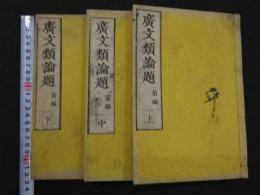 廣文類論題 前編 上
廣文類論題 前編 中
廣文類論題 前編 下